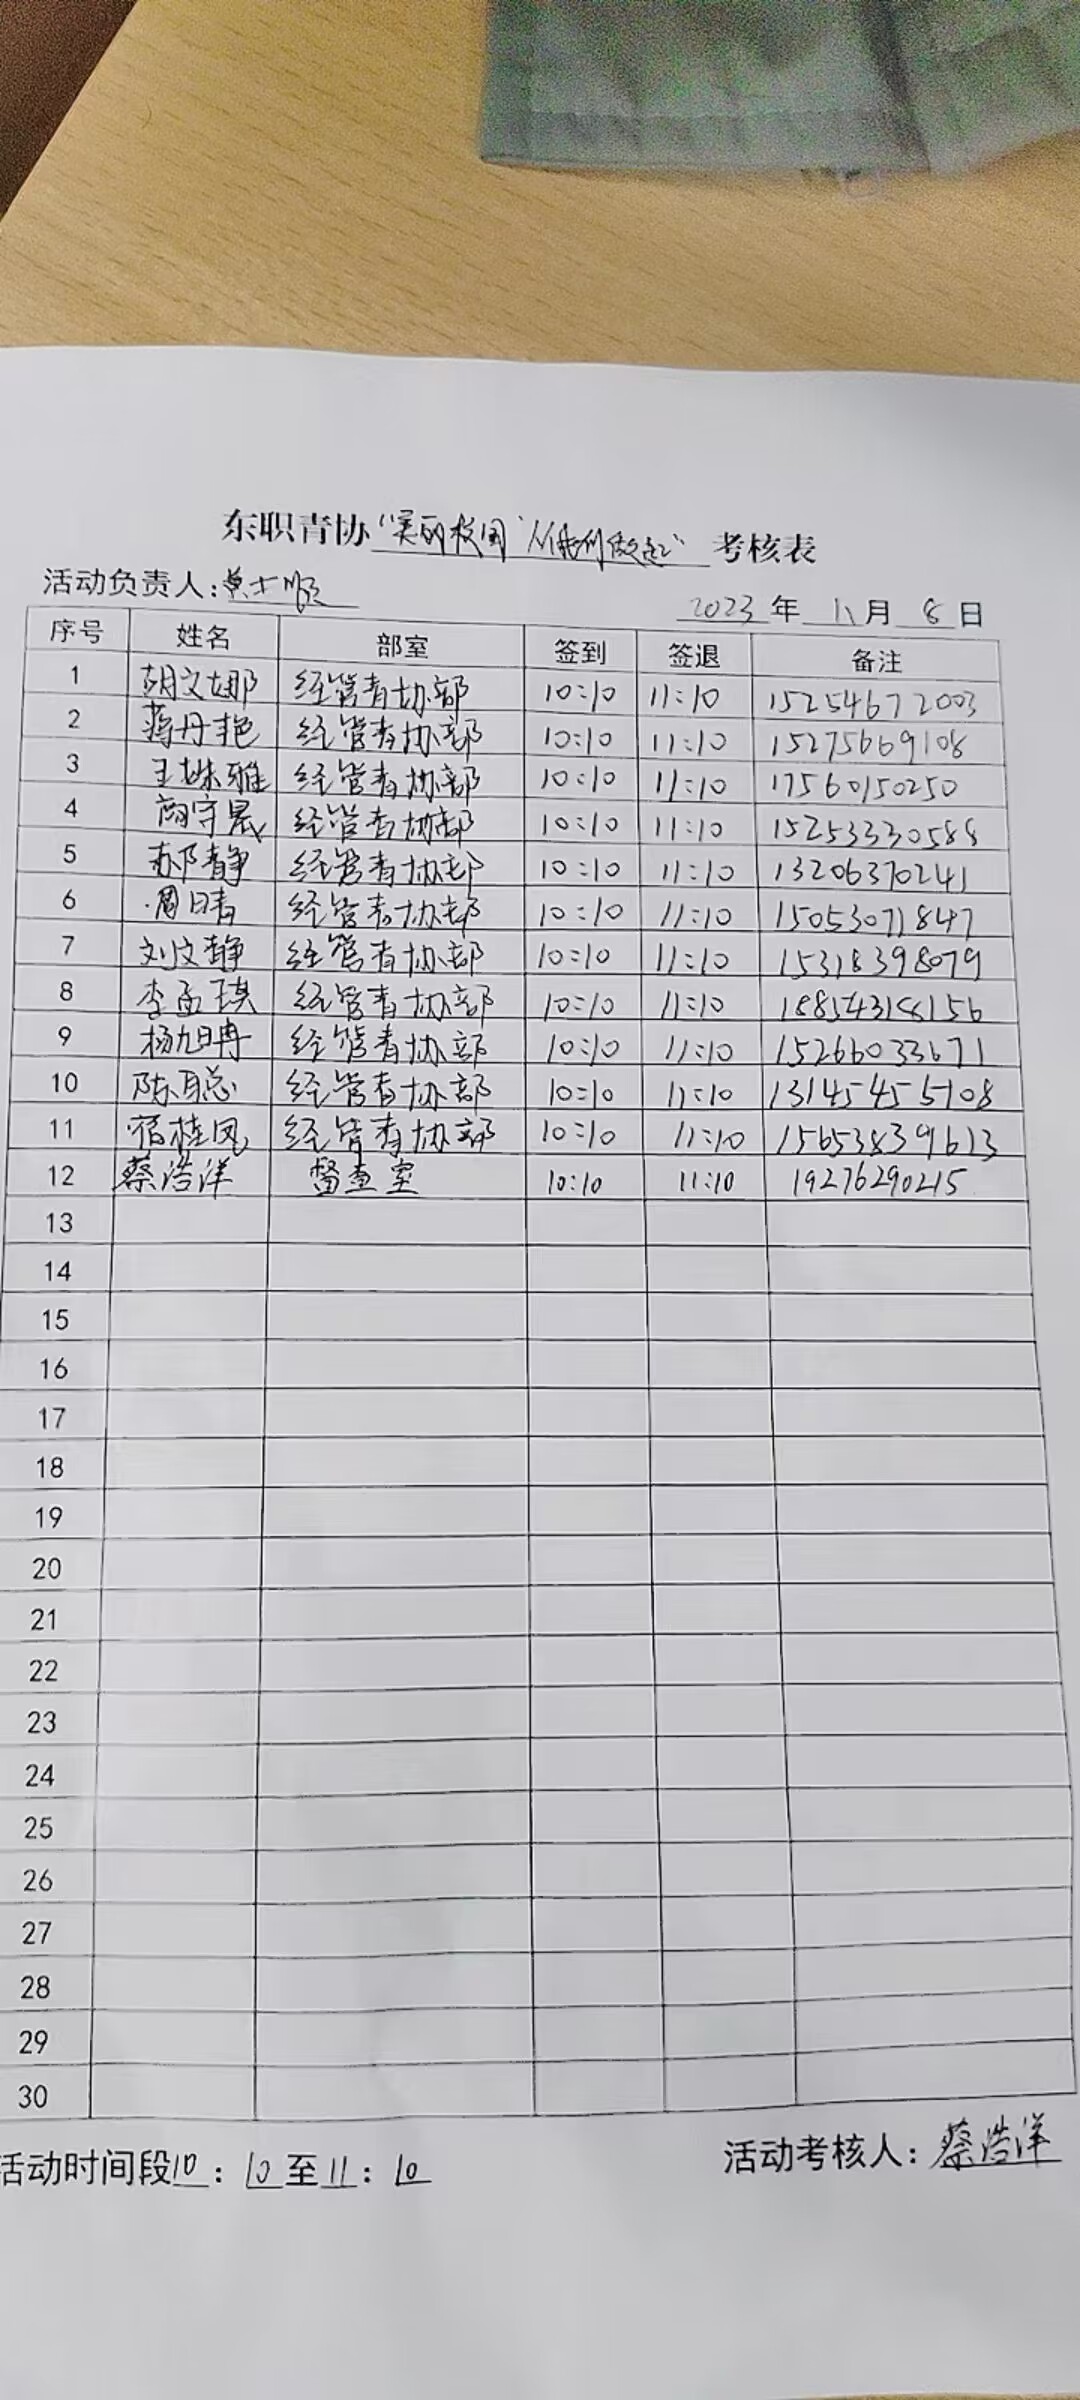 东职青协“美丽校园 从我们做起” 考核表
活动负责人:黄士顺
2023 年 11 月 8 日
序号 姓名 部室 签到 签退 备注
1 胡文娜 经管青协部 10:10 11:10 15254672003
2 蒋丹艳 经管青协部 10:10 11:10 15275669108
3 王姝雅 经管青协部 10:10 11:10 17560150250
4 颜守晟 经管青协部 10:10 11:10 15253330588
5 郝静 经管青协部 10:10 11:10 13206370241
6 周晴 经管青协部 10:10 11:10 15053071847
7 刘文静 经管青协部 10:10 11:10 15318398079
8 李孟琪 经管青协部 10:10 11:10 18854318156
9 杨旭冉 经管青协部 10:10 11:10 15266033671
10 陈聪 经管青协部 10:10 11:10 13145455108
11 宿桂凤 经管青协部 10:10 11:10 15653839613
12 蔡浩洋 督查室 10:10 11:10 19276290215
13
14
15
16
17
18
19
20
21
22
23
24
25
26
27
28
29
30
活动时间段10:10至11:10
活动考核人:蔡浩洋